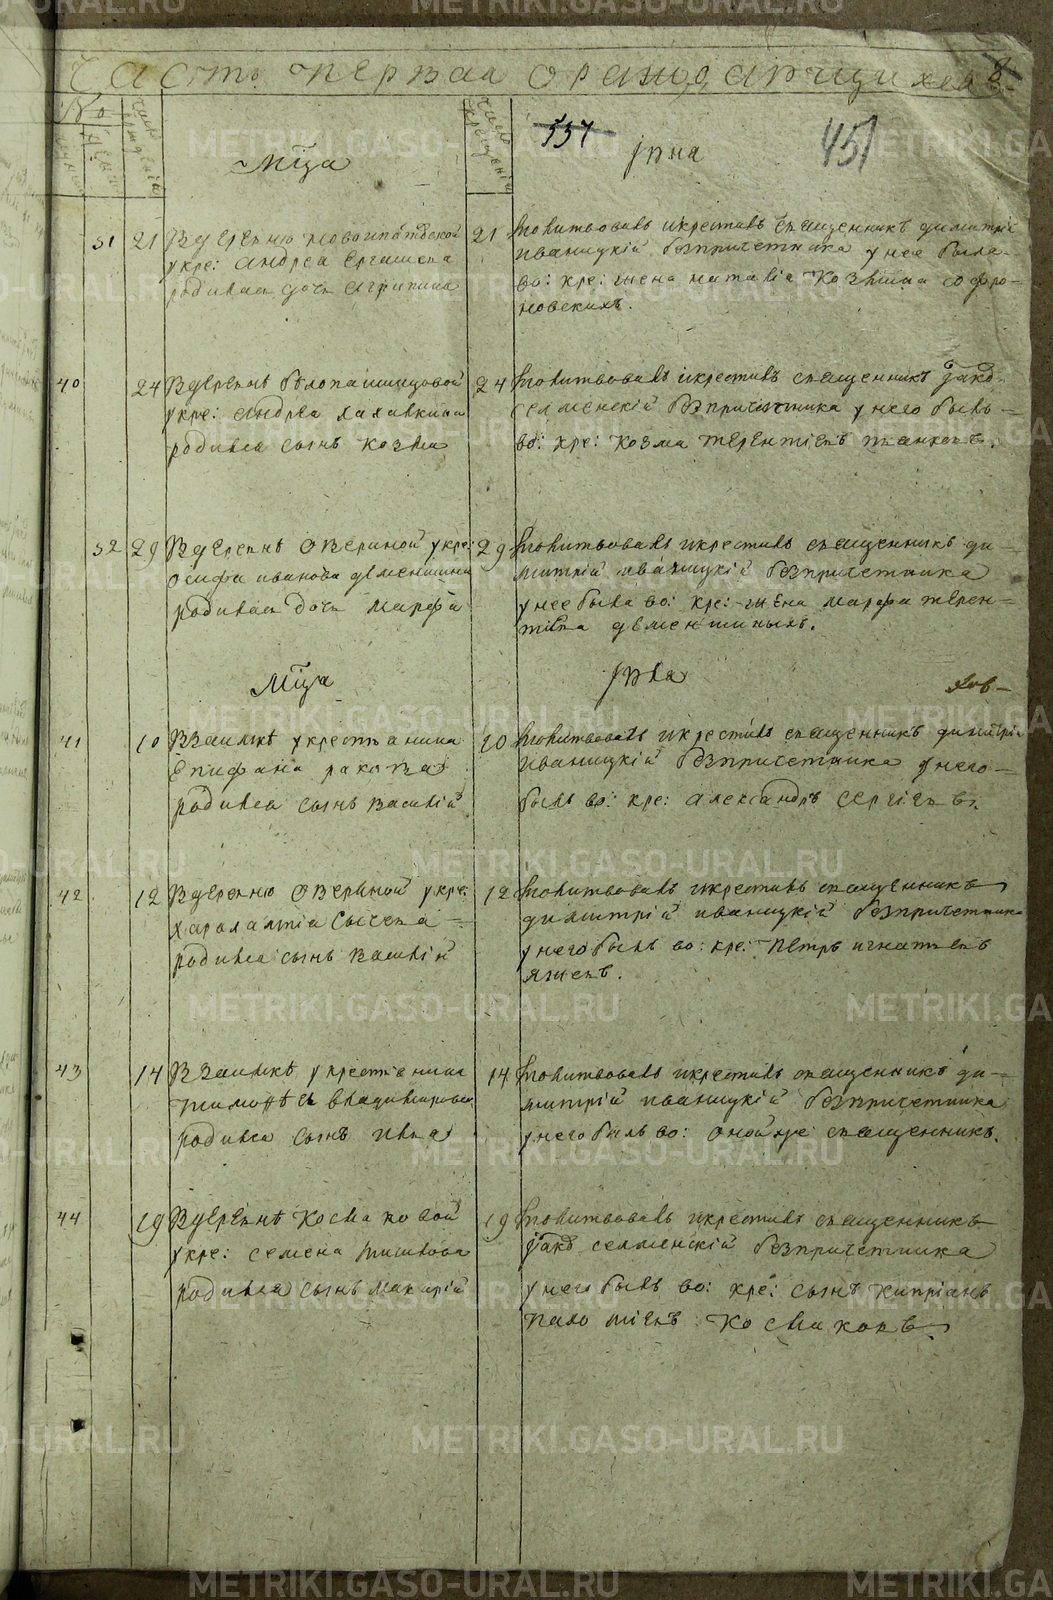 Часть первая о раждающихся
8
№
число рождения
число крещения
537
451
Мца
Iюня
31 21 Вдеревню новоипатовской
укре: андрея
родилась дочь агрипина
21 молитвовалъ икрестилъ священникъ димитрiй
иваницкiй безпричетника унее была
во: кре: жена наталiа Козмина софро-
новскихъ.
40 24 Вдеревнѣ бѣлопашинцовой
укре: андреа халявкина
родился сынъ козма
24 молитвовалъ икрестилъ священникъ Iаковъ
селменскiй безпричетника унего былъ
во: кре: козма терентiевъ
32 29 Вдеревнѣ Озериной укре:
осифа иванова дѣменшина
родилась дочь марфа
29 молитвовалъ икрестилъ священникъ ди-
митрiй иваницкiй безпричетника
унее была во: кре: жена марфа терен-
тiева дѣменшиныхъ.
Мца
Iюля
41 10 Взаимкѣ укрестьянина
Епифана ракова
родился сынъ василiй
10 молитвовалъ икрестилъ священникъ димитрiй
иваницкiй безпричетника унего
былъ во: кре: александръ сергiевъ.
42 12 Вдеревню Озериной укре:
харалампiа сычева
родился сынъ василiй
12 молитвовалъ икрестилъ священникъ
димитрiй иваницкiй безпричетника
унего былъ во: кре: петръ игнатьевъ
язжевъ.
43 14 Взаимкѣ укрестьянина
тимофѣя владимирова
родился сынъ
14 молитвовалъ икрестилъ священникъ ди-
митрiй иваницкiй безпричетника
унего былъ во: оной же священникъ.
44 19 Вдеревнѣ Космаковой
укре: семена
родился сынъ макарiй
19 молитвовалъ икрестилъ священникъ
Iаковъ селменскiй безпричетника
унего былъ во: кре: сынъ кипрiанъ
Космаковъ
METRIKI.GASO-URAL.RU